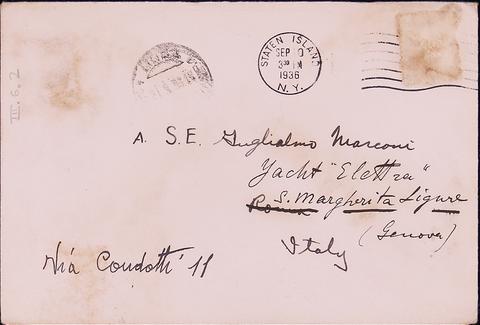 STATEN ISLAND
SEP
3 30 PM
1936
N. Y.
III. 6. 2
A. S.E. Guglialmo Marconi
Yacht "Elettra"
Roma S. Margherita Ligure
(Genova)
Italy
Via Condotti 11